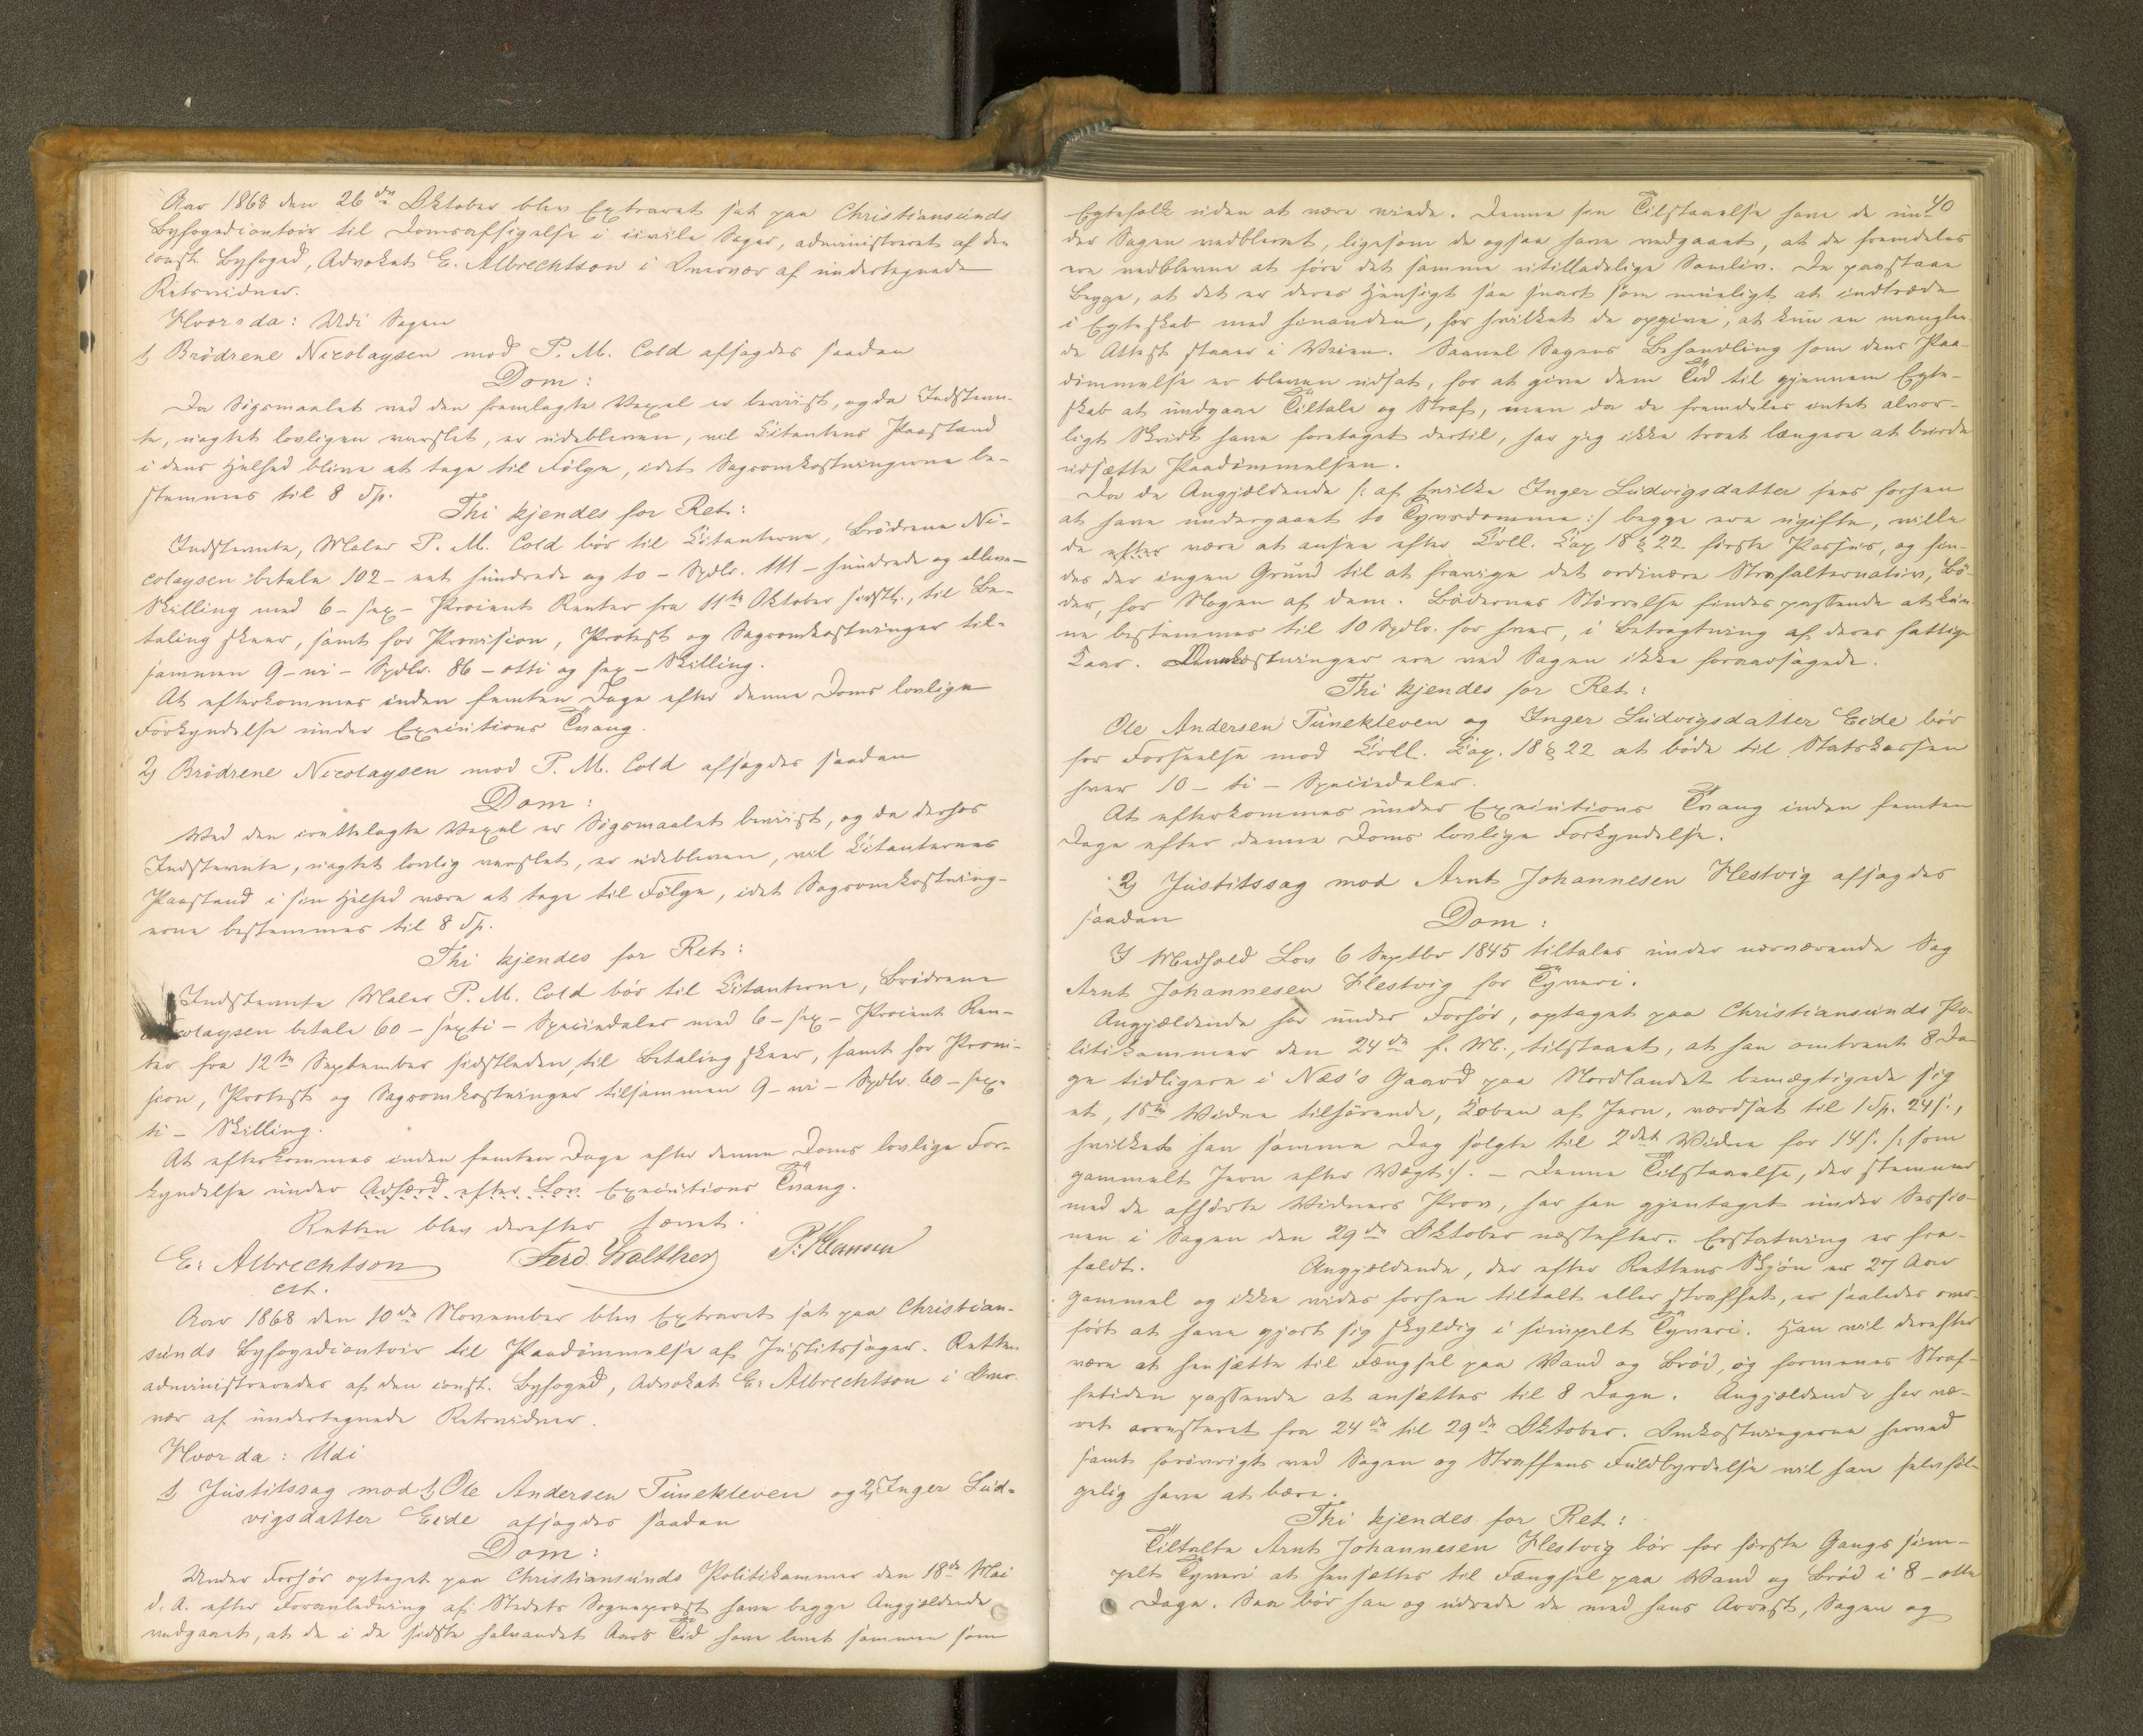 Aar 1868 den 26de Oktober blev Extraret sat paa Christiansunds
Byfogedcontoir til Domsafsigelse i civile Sager, administreret af den
const. Byfoged, Advokat E. Albrechtson i Overvær af undertegnede
Retsvidner.
Hvor da: Udi Sagen
1) Brödrene Nicolaysen mod P. M. Cold afsagdes saadan
Dom:
Da Sögsmaalet ved den fremlagte Vexel er beviist, og da Indstevn-
te, uagtet lovligen varslet, er udebleven, vil Citantens Paastand
i dens Helhed blive at tage til Fölge, idet Sagsomkostningerne be-
stemmes til 8 Sp.
Thi kjendes for Ret:
Indstevnte, Maler P. M. Cold bör til Citanterne, Brödrene Ni-
colaysen betale 102 - eet hundrede og to - Spdlr. 111 - hundrede og elleve -
Skilling med 6 - sex - Procent Renter fra 11te Oktober sidstl., til Be-
taling skeer, samt for Provision, Protest og Sagsomkostninger til-
sammen 9 - ni - Spdlr. 86 - otti og sex - Skilling.
At efterkommes inden femten Dage efter denne Doms lovlige
Forkyndelse under Executions Tvang.
2) Brödrene Nicolaysen mod P. M. Cold afsagdes saadan
Dom:
Ved den irettelagte Vexel er Sögsmaalet beviist, og da derhos
Indstevnte, uagtet lovlig varslet, er udebleven, vil Citanternes
Paastand i sin Helhed være at tage til Fölge, idet Sagsomkostning-
erne bestemmes til 8 Sp.
Thi kjendes for Ret:
Indstevnte Maler P. M. Cold bör til Citanterne, Brödrene
Nicolaysen betale 60 - sexti - Speciedaler med 6 - sex - Procent Ren-
ter fra 12te September sidstleden, til Betaling skeer, samt for Provi-
sion, Protest og Sagsomkostninger tilsammen 9 - ni - Spdlr. 60 - sex-
ti - Skilling.
At efterkommes inden femten Dage efter denne Doms lovlige For-
kyndelse under Adfærd efter Lov Executions Tvang.
Retten blev derefter hævet.
E. Albrechtson Ferd. Walther P. Hansen
cst.
Aar 1868 den 10de November blev Extraret sat paa Christian-
sunds Byfogedcontoir til Paadömmelse af Justitssager. Retten
administreredes af den const. Byfoged, Advokat E. Albrechtson i Over-
vær af undertegnede Retsvidner.
Hvor da: Udi
1) Justitssag mod 1) Ole Andersen Tunekleven og 2) Inger Lud-
vigsdatter Eide afsagdes saadan
Dom:
Under Forhör optaget paa Christiansunds Politikammer den 18de Mai
d. A. efter Foranledning af Stedets Sognepræst have begge Angjældende
vedgaaet, at de i de sidste halvandet Aars Tid have levet sammen som
40
Egtefolk uden at være viede. Denne sin Tilstaaelse have de un-
der Sagen vedblevet, ligesom de ogsaa have vedgaaet, at de fremdeles
ere vedblevne at före det samme utilladelige Samliv. De paastaae
begge, at det er deres Hensigt saa snart som muligt at indtræde
i Egteskab med hinanden, for hvilket de opgive, at kun en manglen-
de Attest staaer i Veien. Saavel Sagens Behandling som dens Paa-
dömmelse er bleven udsat, for at give dem Tid til gjennem Egte-
skab at undgaae Tiltale og Straf, men da de fremdeles intet alvor-
ligt Skridt have foretaget dertil, har jeg ikke troet længere at burde
udsætte Paadömmelsen.
Da de Angjældende /: af hvilke Inger Ludvigsdatter sees forhen
at have undergaaet to Tyvsdomme :/ begge ere ugifte, ville
de efter være at ansee efter Crll. Cap 18 § 22 förste Passus, og fin-
des der ingen Grund til at fravige det ordinære Strafalternativ, Bö-
der, for Nogen af dem. Bödernes Störrelse findes passende at kun-
ne bestemmes til 10 Spdlr. for hver, i Betragtning af deres fattige
Kaar. Omkostninger ere ved Sagen ikke foraarsagede.
Thi kjendes for Ret:
Ole Andersen Tunekleven og Inger Ludvigsdatter Eide bör
for Forseelse mod Crll. Cap. 18 § 22 at böde til Statskassen
hver 10 - ti - Speciedaler.
At efterkommes under Executions Tvang inden femten
Dage efter denne Doms lovlige Forkyndelse.
2) Justitssag mod Arnt Johannesen Hestvig afsagdes
saadan
Dom:
I Medhold Lov 6 Septbr 1845 tiltales under nærværende Sag
Arnt Johannesen Hestvig for Tyveri.
Angjældende har under Forhör, optaget paa Christiansunds Po-
litikammer den 24de f. M., tilstaaet, at han omtrent 8 Da-
ge tidligere i Næs's Gaard paa Nordlandet bemægtigede sig
et, 15de Vidne tilhörende, Toben af Jern, værdsat til 1 Sp. 24 s.,
hvilket han samme Dag solgte til 2det Vidne for 14 s. /: som
gammelt Jern efter Vægt :/. - Denne Tilstaaelse, der stemmer
med de afhörte Vidners Prov, har han gjentaget under Sessio-
nen i Sagen den 29de Oktober næstefter. Erstatning er fra-
faldt. Angjældende, der efter Rettens Skjön er 27 Aar
gammel og ikke vides forhen tiltalt eller straffet, er saaledes over-
fört at have gjort sig skyldig i simpelt Tyveri. Han vil derefter
være at hensætte til Fængsel paa Vand og Bröd, og formenes Straf-
fetiden passende at ansættes til 8 Dage. Angjældende har væ-
ret arresteret fra 24de til 29de Oktober. Omkostningerne herved
samt forövrigt ved Sagen og Straffens Fuldbyrdelse vil han selvföl-
gelig have at bære.
Thi kjendes for Ret:
Tiltalte Arnt Johannesen Hestvig bör for förste Gangs sim-
pelt Tyveri at hensættes til Fængsel paa Vand og Bröd i 8 - otte
Dage. Saa bör han og udrede de med hans Arrest, Sagen og